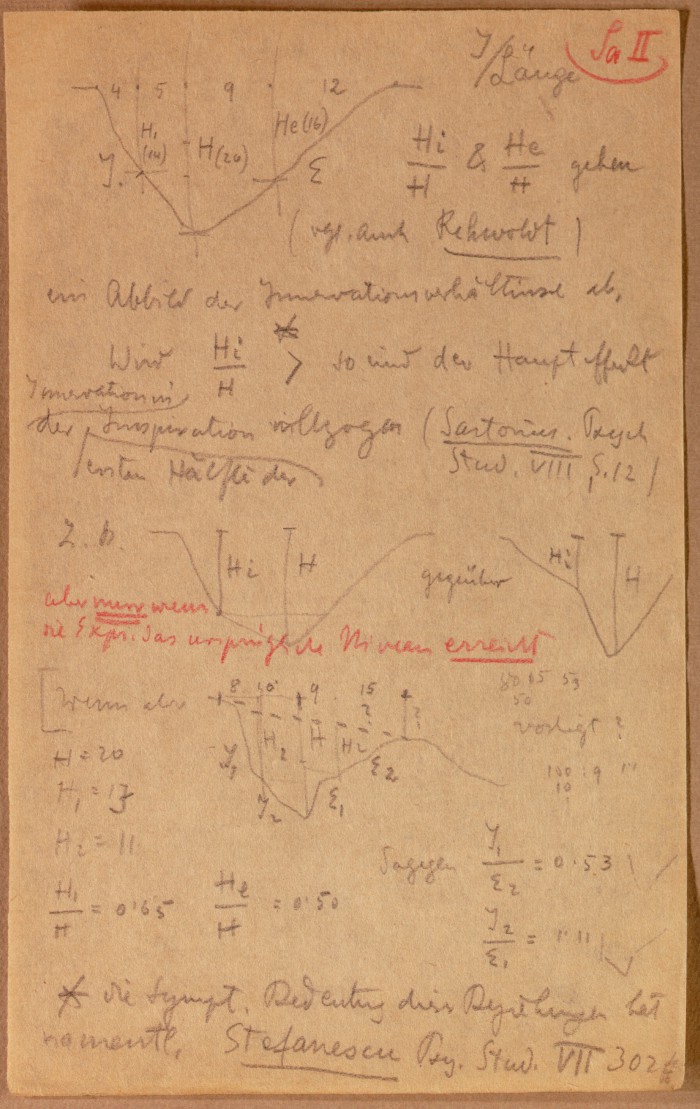 Sa II
J/Länge
4 5 9 12
H1 (14)
H(20)
He(16)
J.
ε
Hi/H & He/H geben
(vgl. auch Rehwoldt)
ein Abbild der Innervationsverhältnisse ab.
Wird Hi/H > so wird der Haupteffekt
Innervation in
der Inspiration vollzogen (Sartorius. Psych
ersten Hälfte der
Stud. VIII, S. 12)
Z. B.
Hi H
gegenüber
Hi H
aber nur wenn
die Expir. das ursprüngliche Niveau erreicht
[Wenn aber
8 10 9 15
?
H2 H H2
J1 J2 ε1 ε2
80 65 53
50
vorliegt ?
100 : 9
10
H = 20
H1 = 13
H2 = 11
H1/H = 0·65
He/H = 0·50
Dagegen J1/ε2 = 0·53
J2/ε1 = 1·11
die Sympt. Bedeutung dieser Beziehungen hat
namentl. Stefanescu Psy. Stud. VII 302 ff.